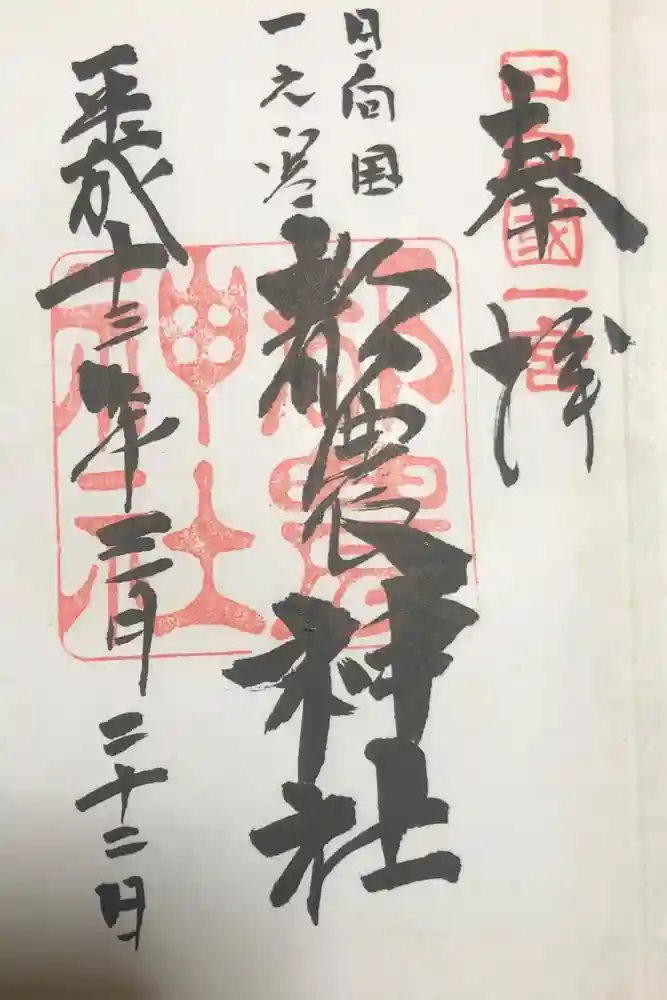 奉拝
日向國一宮
日向国
一之宮
都農神社
都農神社
平成十三年三月二十二日